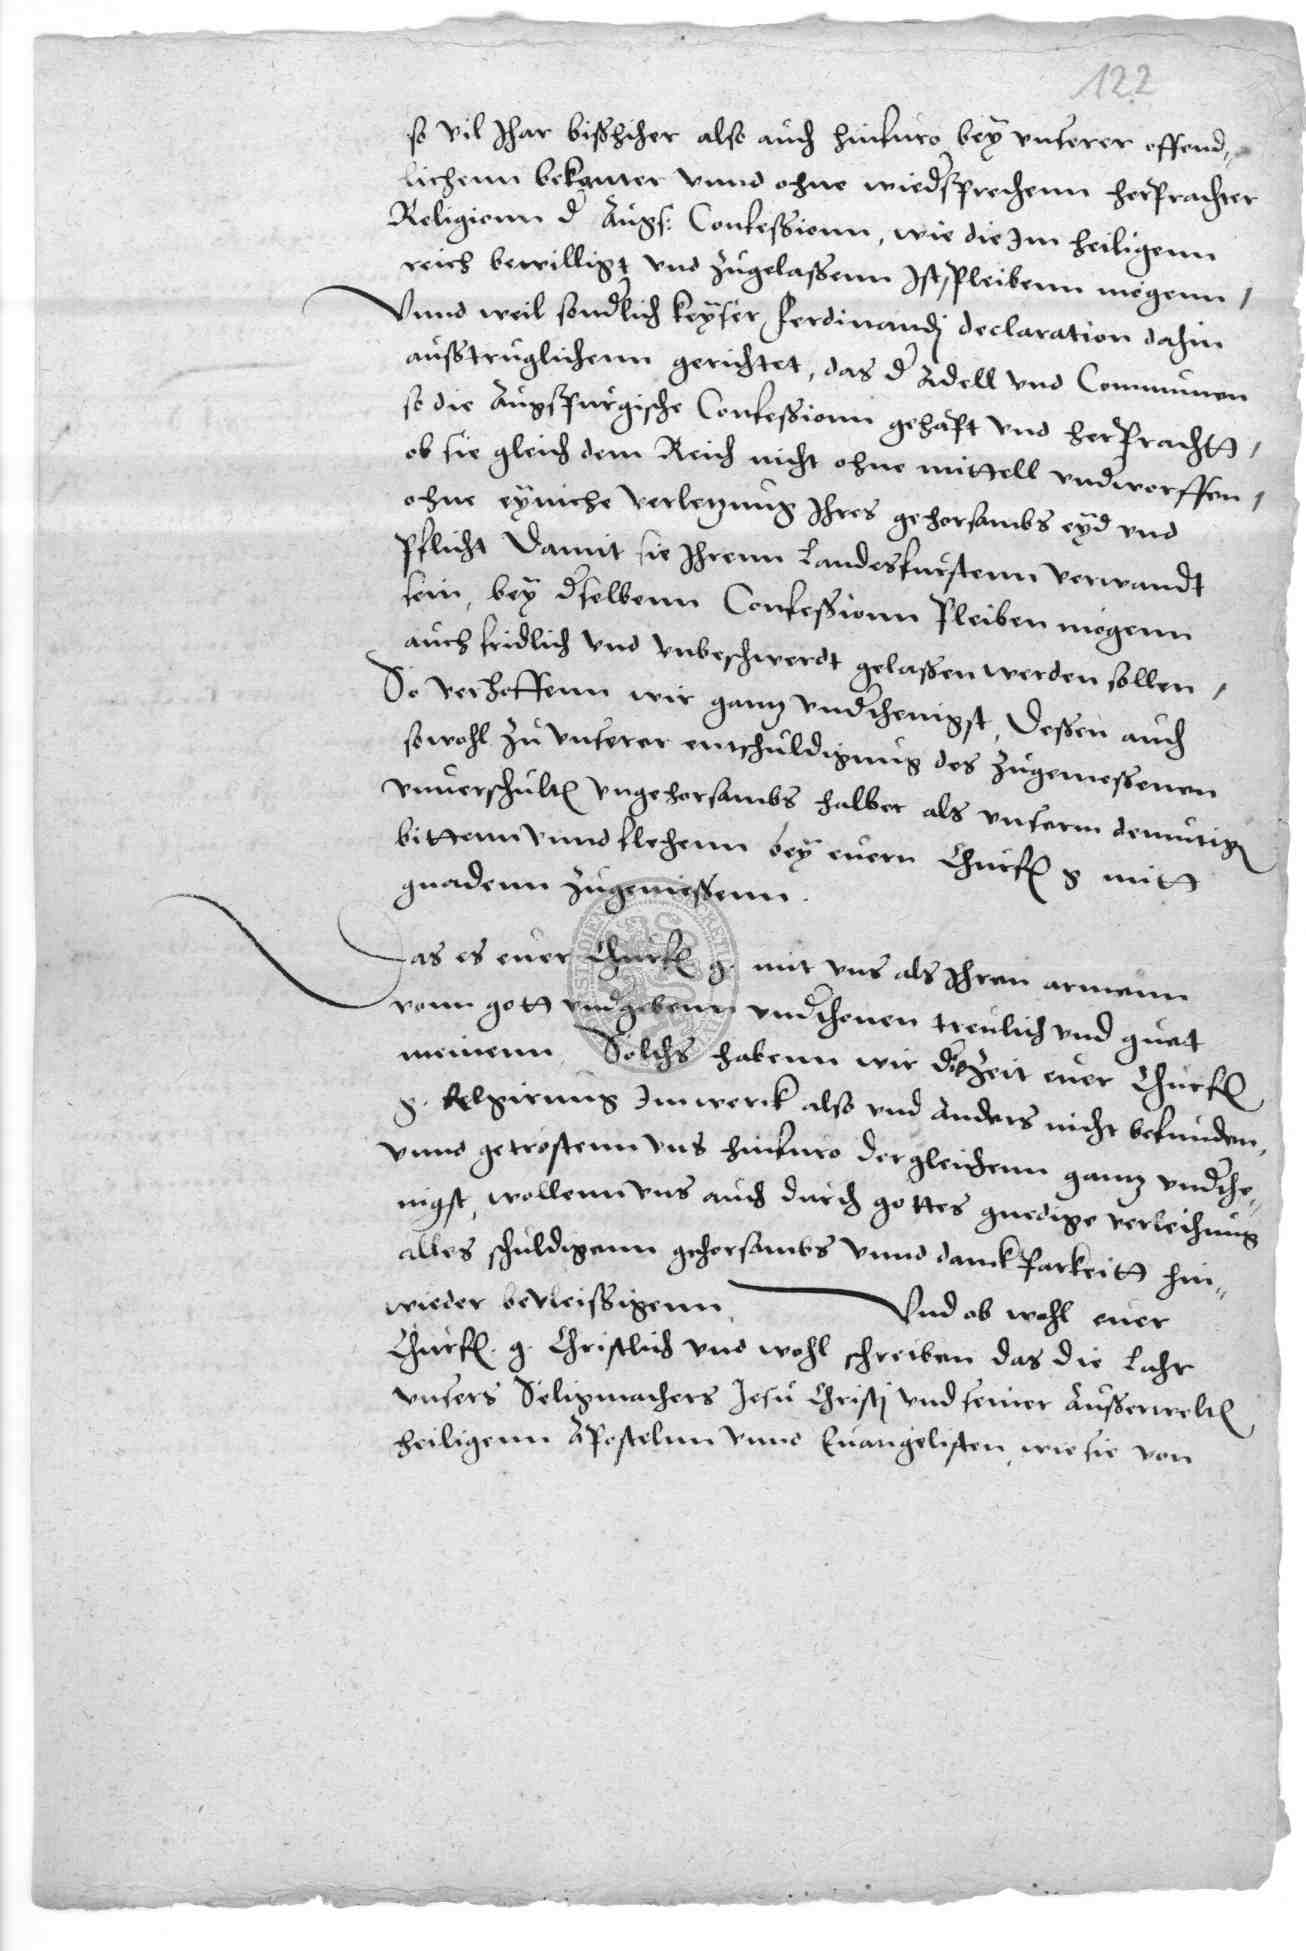 122
so vil Jhar bißhiher also auch hinfuro bey vnserer offend„
lichenn bekanter vnnd ohne wiedsprechenn herprachter
Religionn d Augs: Confessionn, wie die Jm heiligenn
reich bewilligt vnd zugelassenn Jst, pleibenn mögenn /
Vnnd weil sondlich keyser ferdinandj declaration dahin
außtruglichenn gerichtet, das d Adell vnd Communen
so die Augspurgische Confessionn gehapt vnd herprachtt /
ob sie gleich dem Reich nicht ohne mittell vndworffen /
ohne eyniche verletzung Jhres gehorsambs eyd vnd
pflicht Damit sie Jhrenn Landesfurstenn verwandt
sein, bey dselbenn Confessionn pleiben mögenn
auch fridlich vnd vnbeschwerdt gelassen werden sollen /
So verhoffenn wir gantz vndthenigst, dessen auch
sowohl zu vnserer entschuldigung des zugemessenen
vnuerschulten vngehorsambs halber als vnserm demutigen
bittenn vnnd flehenn bey euern Churf g mitt
gnadenn zugeniessenn.
Das es euer Churf g. mit vns als Jhren armenn
vonn gott vndgebenn vndthonen treulich vnd guett
meinenn, Solchs habenn wir die Zeit euer Churf
g. Regirung Jm werck also vnd anders nicht befunden,
vnnd getröstenn vns hinfuro dergleichenn gantz vndthe„
nigst, wollenn vns auch durch gottes gnedige verleihung
alles schuldigenn gehorsambs vnnd danckparkeitt hin„
wieder bevleissigenn. Vnd ob wohl euer
Churf. g. Christlich vnd wohl schreiben das die Lahr
vnsers Seligmachers Jesu Christj vnd seiner Ausserwelten
heiligenn Apostelnn vnnd Euangelisten, wie sie von